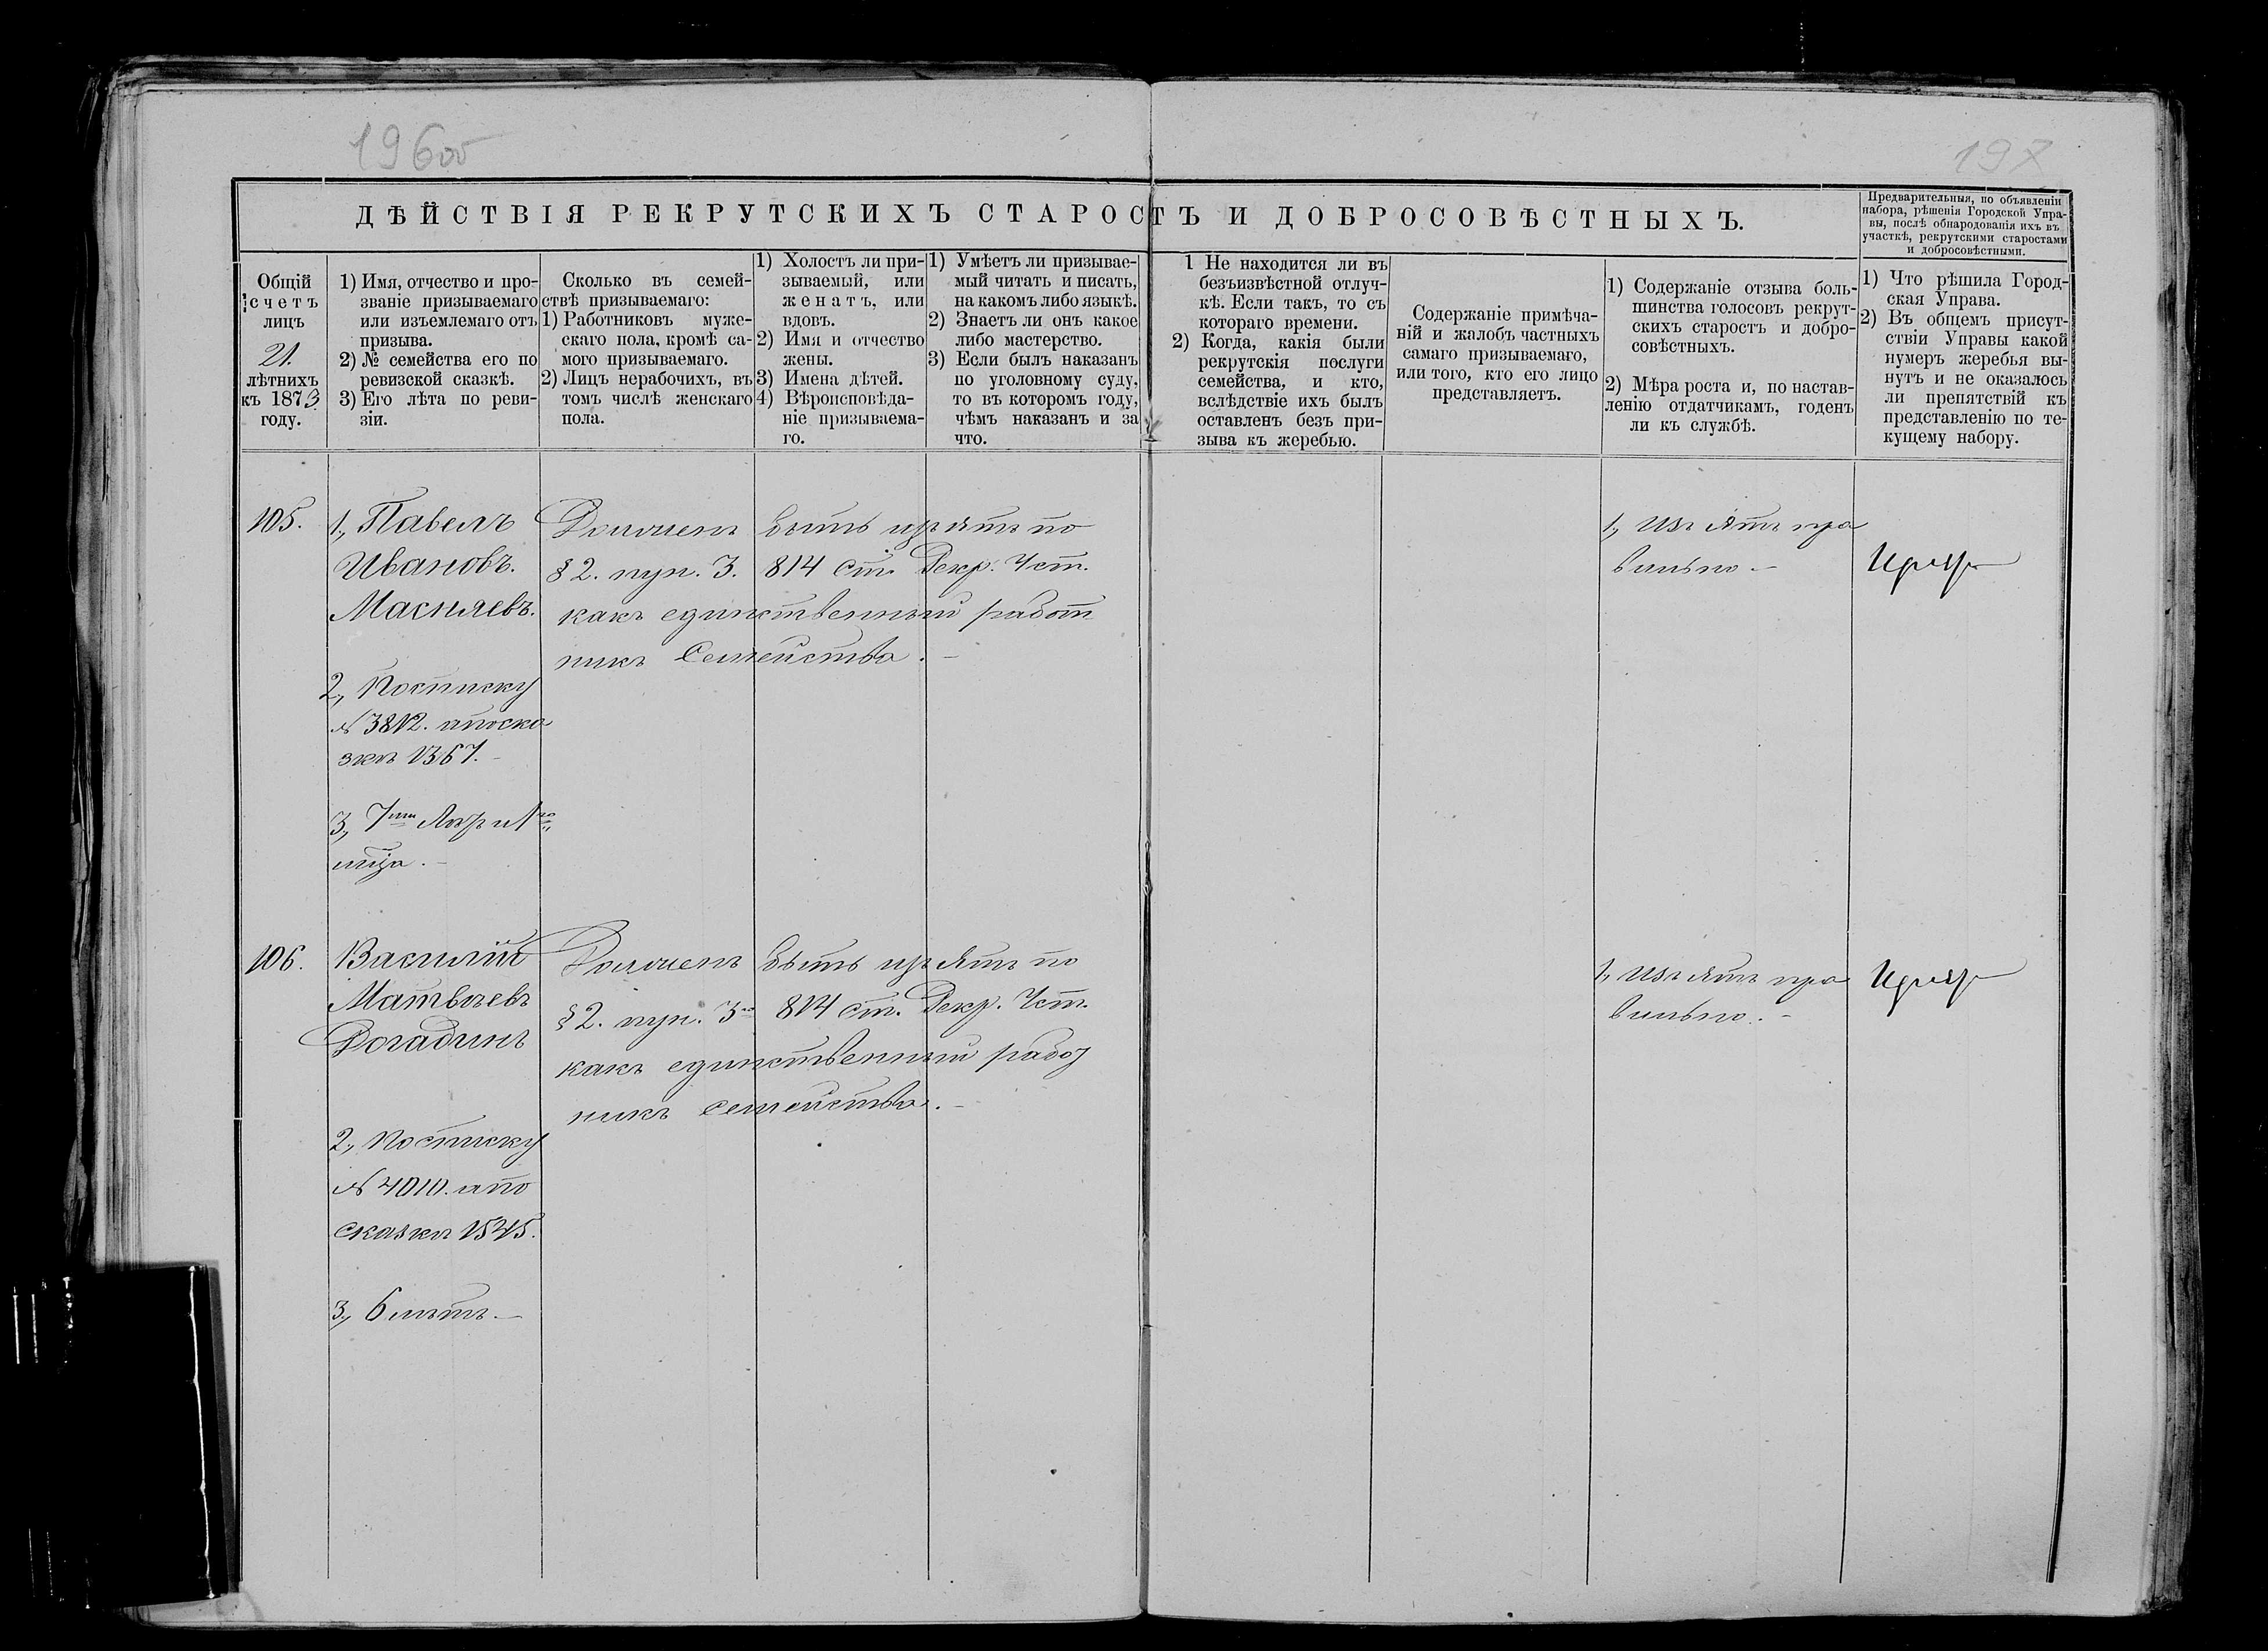 196об
197
ДѢЙСТВІЯ РЕКРУТСКИХЪ СТАРОСТЪ И ДОБРОСОВѢСТНЫХЪ.
Предварительныя, по объявленіи
набора, рѣшенія Городской Упра-
вы, послѣ обнародованія ихъ въ
участкѣ, рекрутскими старостами
и добросовѣстными.
Общій
счетъ
лицъ
21.
лѣтнихъ
къ 1873
году.
1) Имя, отчество и про-
званіе призываемаго
или изъемлемаго отъ
призыва.
2) № семейства его по
ревизской сказкѣ.
3) Его лѣта по реви-
зіи.
Сколько въ семей-
ствѣ призываемаго:
1) Работниковъ муже-
скаго пола, кромѣ са-
мого призываемаго.
2) Лицъ нерабочихъ, въ
томъ числѣ женскаго
пола.
1) Холостъ ли при-
зываемый, или
женатъ, или
вдовъ.
2) Имя и отчество
жены.
3) Имена дѣтей.
4) Вѣроисповѣда-
ніе призываема-
го.
1) Умѣетъ ли призывае-
мый читать и писать,
на какомъ либо языкѣ.
2) Знаетъ ли онъ какое
либо мастерство.
3) Если былъ наказанъ
по уголовному суду,
то въ которомъ году,
чѣмъ наказанъ и за
что.
1 Не находится ли въ
безъизвѣстной отлуч-
кѣ. Если такъ, то съ
котораго времени.
2) Когда, какія были
рекрутскія послуги
семейства, и кто,
вслѣдствіе ихъ былъ
оставленъ безъ при-
зыва къ жеребью.
Содержаніе примѣча-
ній и жалобъ частныхъ
самаго призываемаго,
или того, кто его лицо
представляетъ.
1) Содержаніе отзыва боль-
шинства голосовъ рекрут-
скихъ старостъ и добро-
совѣстныхъ.
2) Мѣра роста и, по настав-
ленію отдатчикамъ, годенъ
ли къ службѣ.
1) Что рѣшила Город-
ская Управа.
2) Въ общемъ присут-
ствіи Управы какой
нумеръ жеребья вы-
нутъ и не оказалось
ли препятствій къ
представленію по те-
кущему набору.
105.
1., Павелъ
Ивановъ.
Масляевъ.
2., По списку
№ 3812. а по ска
зкѣ 1367.
3., 7ми
Долженъ быть изъятъ по
§ 2. пун. 3. 814 ст. Рекр. Уст.
какъ единственный работ
никъ Семейства.
1., Изъятъ пра
вильно.
106.
Василій
Матвѣевъ
Догадинъ
2., По списку
№ 4010. а по
сказкѣ 1545.
3., 6 лѣтъ.
Долженъ быть изъятъ по
§ 2. пун. 3го 814 ст. Рекр. Уст.
какъ единственный работ
никъ семейства.
1., Изъятъ пра
вильно.